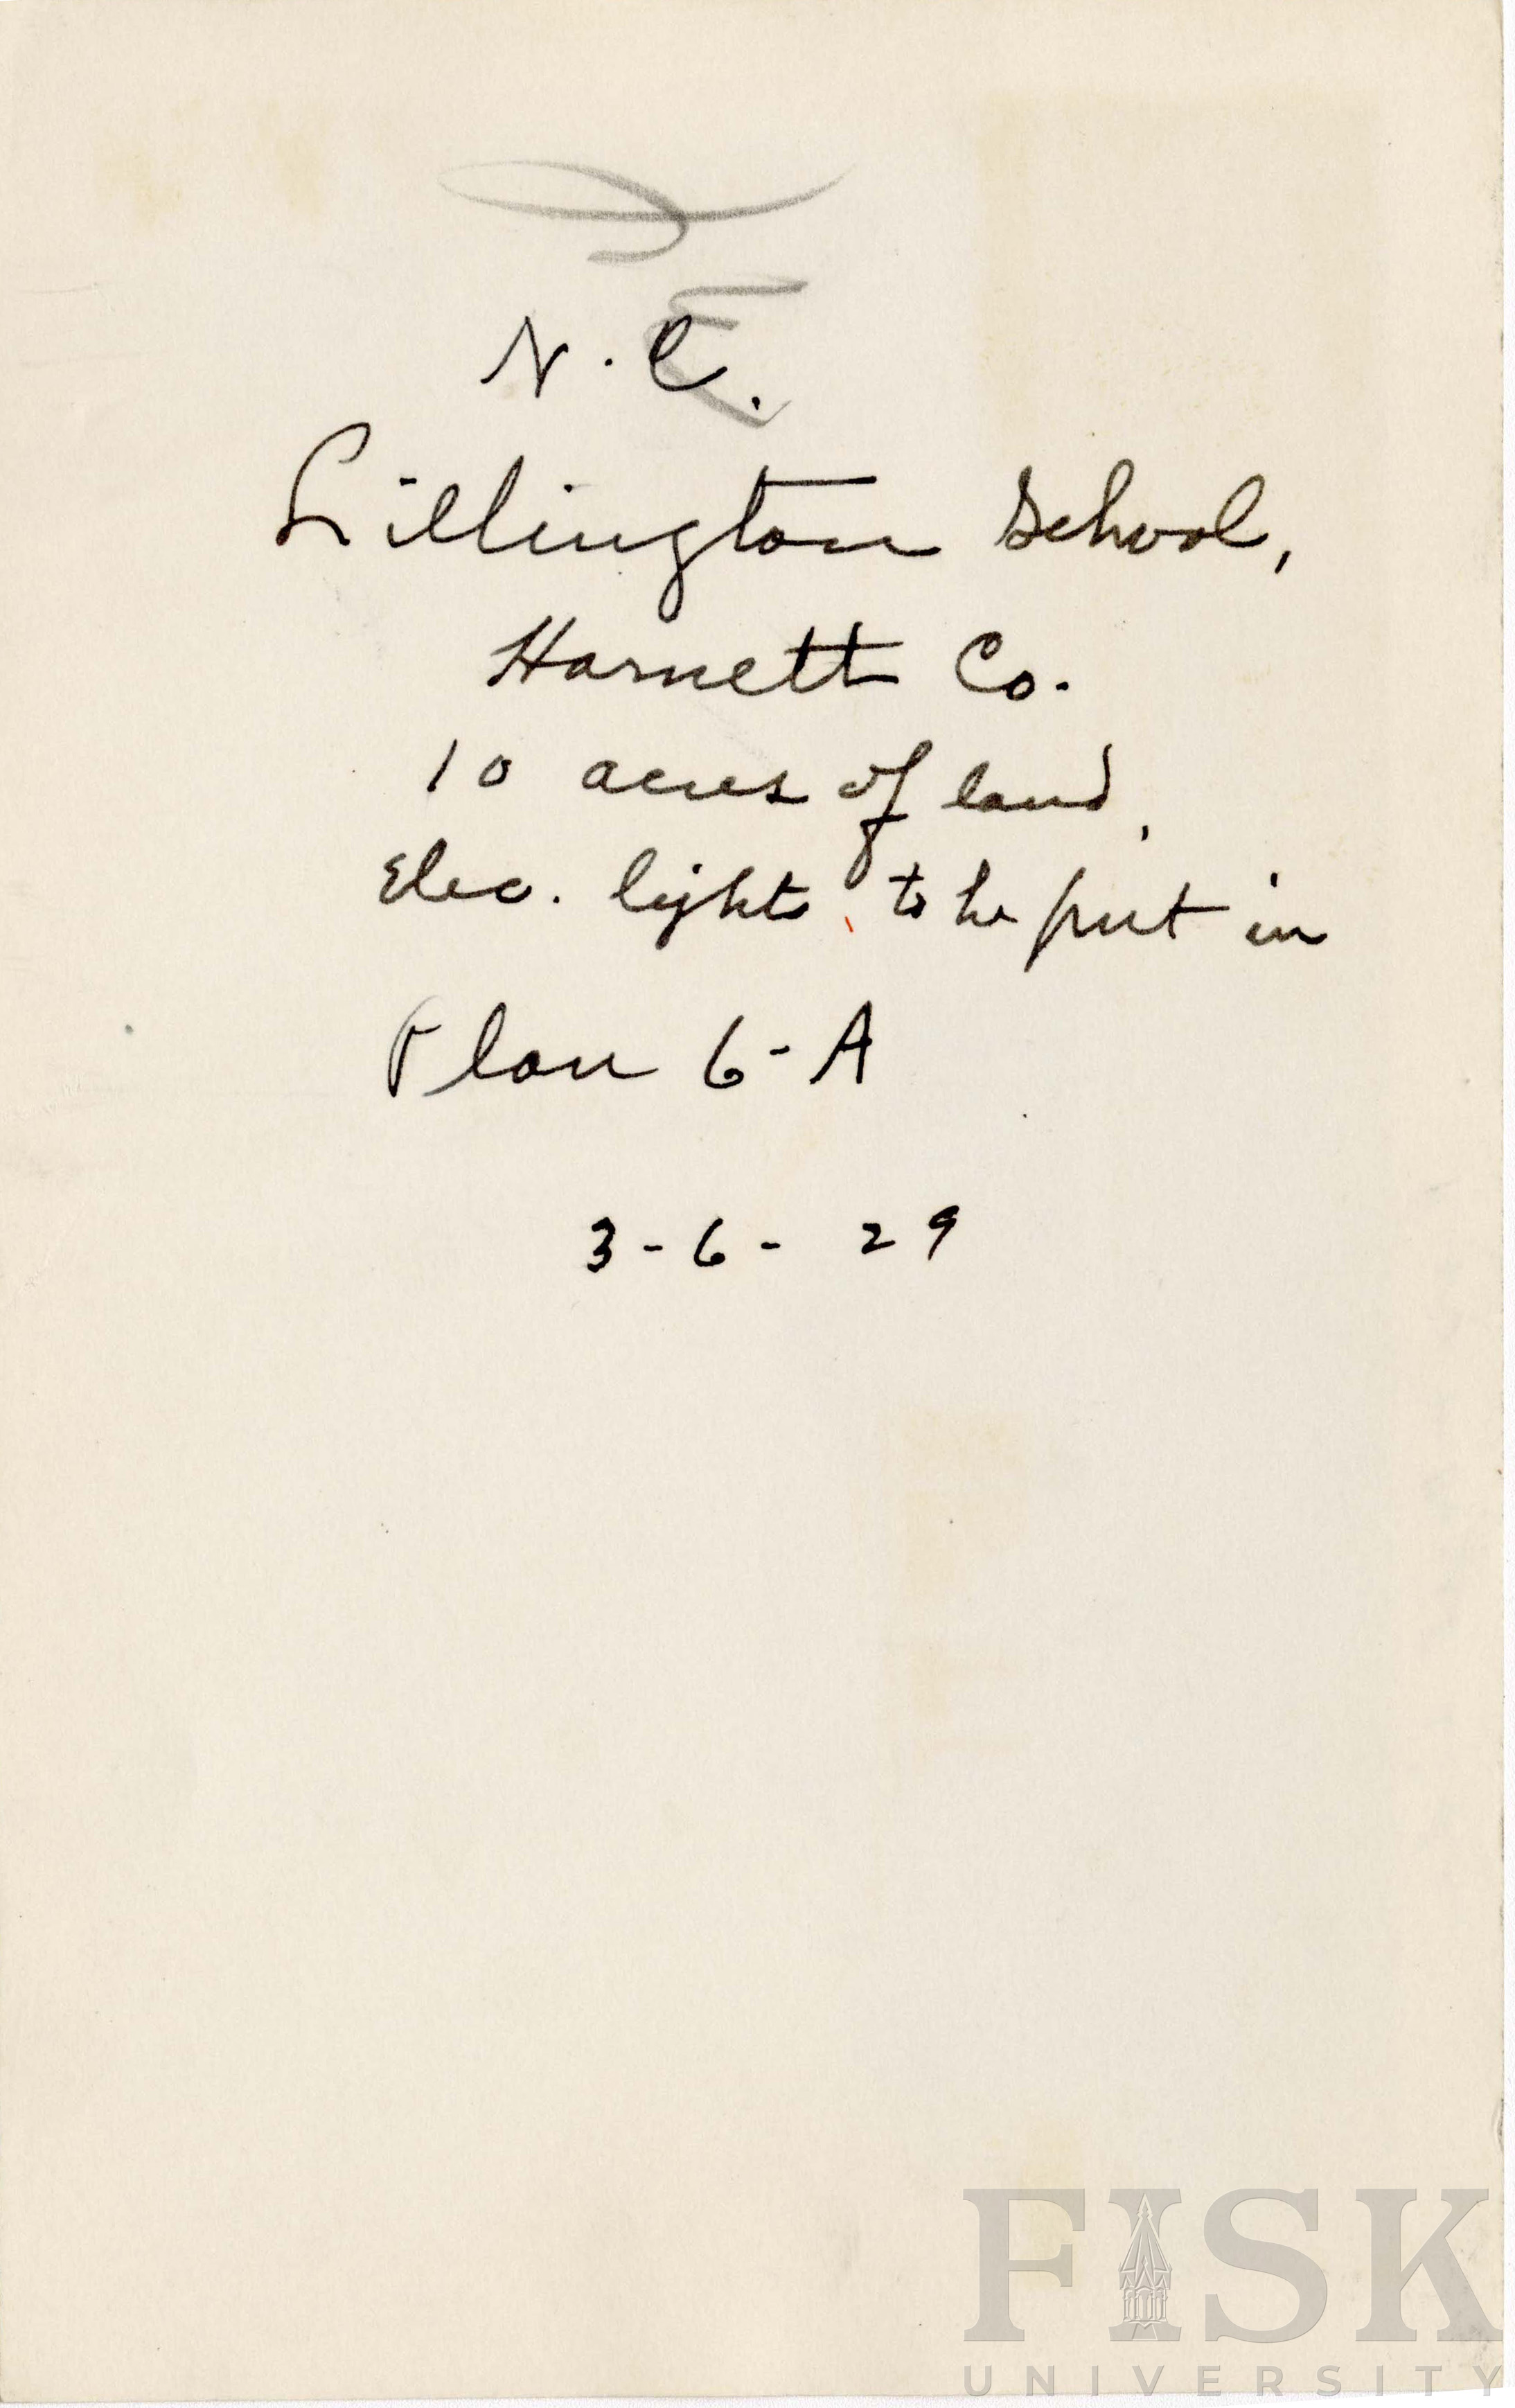 N.C.
Lillington School,
Harnett Co.
10 acres of land,
Elec. lights to be put in
Plan 6-A
3-6-29
FISK
UNIVERSITY